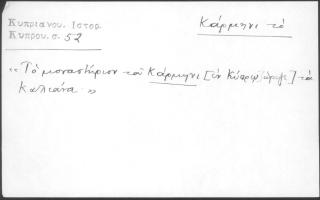 Κυπριανου. Ιστορ.
Κυπρου. σ. 52
Κάρμηνι τὸ
«Τὸ μοναστήριον τοῦ Κάρμηνι [ἐν Κύπρῳ] τὰ
Καλιάνα.»